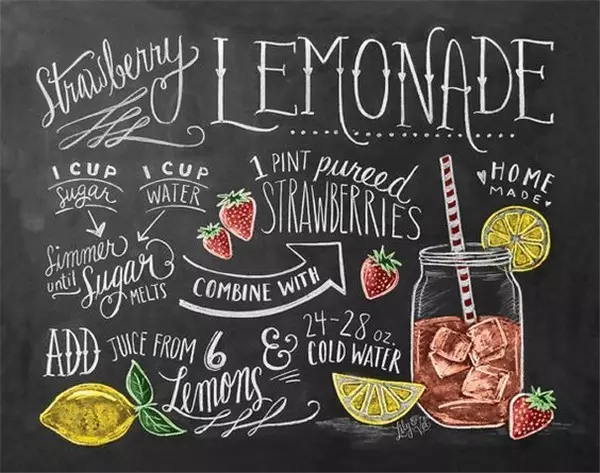 Strawberry LEMONADE
1 CUP Sugar
1 CUP WATER
Simmer until Sugar MELTS
COMBINE WITH
1 PINT pureed STRAWBERRIES
HOME MADE
ADD JUICE FROM 6 Lemons
& 24-28 oz. COLD WATER
Lily & Val